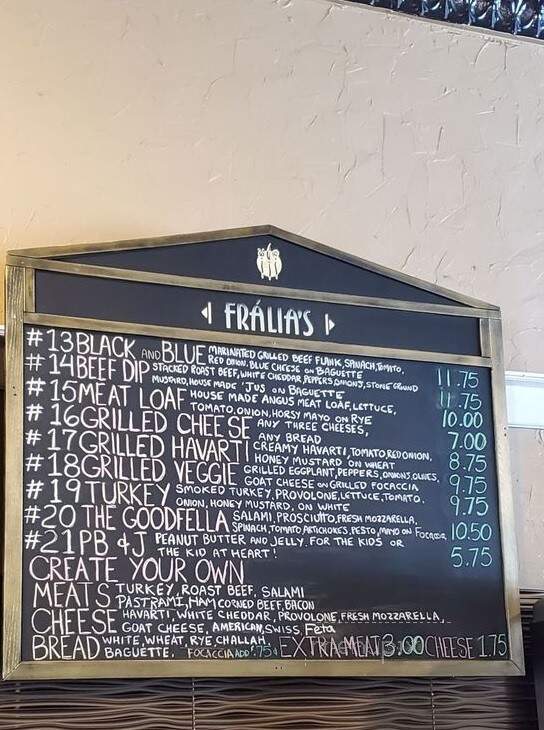 FRÁLIA'S
#13 BLACK AND BLUE MARINATED GRILLED BEEF FLANK, SPINACH, TOMATO,
RED ONION, BLUE CHEESE ON BAGUETTE 11.75
#14 BEEF DIP STACKED ROAST BEEF, WHITE CHEDDAR, PEPPERS, ONIONS, STONE GROUND
MUSTARD, HOUSE MADE 'JUS ON BAGUETTE 11.75
#15 MEAT LOAF HOUSE MADE ANGUS MEAT LOAF, LETTUCE,
TOMATO, ONION, HORSY MAYO ON RYE 10.00
#16 GRILLED CHEESE ANY THREE CHEESES,
ANY BREAD 7.00
#17 GRILLED HAVARTI CREAMY HAVARTI, TOMATO, RED ONION,
HONEY MUSTARD ON WHEAT 8.75
#18 GRILLED VEGGIE GRILLED EGGPLANT, PEPPERS, ONIONS, OLIVES,
GOAT CHEESE ON GRILLED FOCACCIA 9.75
#19 TURKEY SMOKED TURKEY, PROVOLONE, LETTUCE, TOMATO,
ONION, HONEY MUSTARD, ON WHITE 9.75
#20 THE GOODFELLA SALAMI, PROSCIUTTO, FRESH MOZZARELLA,
SPINACH, TOMATO, ARTICHOKES, PESTO, MAYO ON 10.50
#21 PB & J PEANUT BUTTER AND JELLY. FOR THE KIDS OR
THE KID AT HEART! 5.75
CREATE YOUR OWN
MEATS TURKEY, ROAST BEEF, SALAMI
PASTRAMI, HAM CORNED BEEF, BACON
CHEESE HAVARTI, WHITE CHEDDAR, PROVOLONE, FRESH MOZZARELLA,
GOAT CHEESE, AMERICAN, SWISS, Feta
BREAD WHITE, WHEAT, RYE, CHALLAH,
BAGUETTE. FOCACCIA ADD .75¢ EXTRA MEAT 3.00 CHEESE 1.75